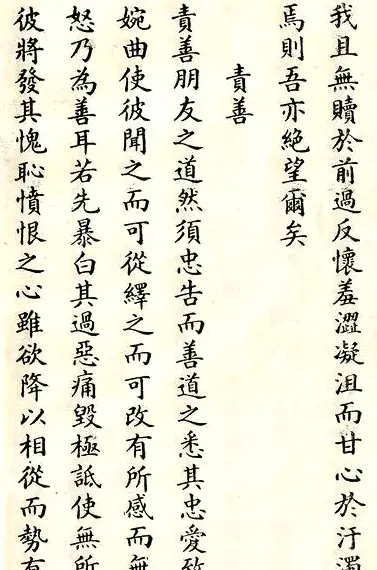 我且無贖於前過反懷羞澀凝沮而甘心於汙濁
焉則吾亦絕望爾矣
責善
責善朋友之道然須忠告而善道之悉其忠愛致
婉曲使彼聞之而可從繹之而可改有所感而無
怒乃為善耳若先暴白其過惡痛毀極詆使無所
彼將發其愧恥憤恨之心雖欲降以相從而勢有